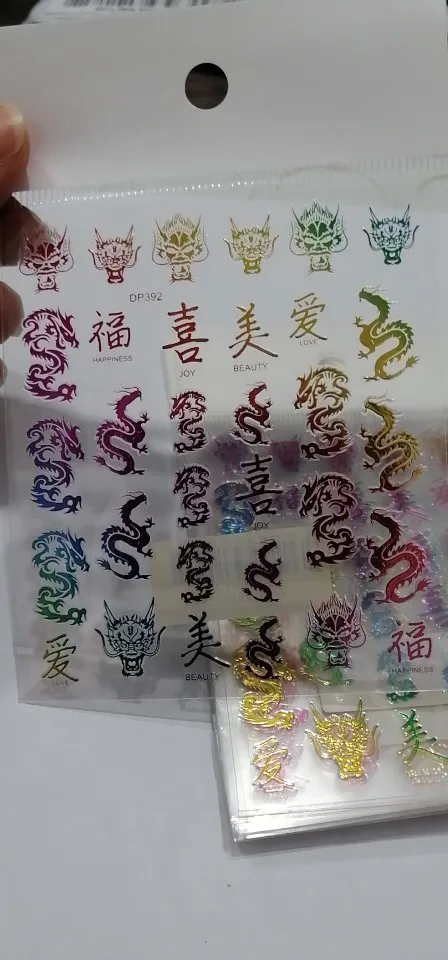 DP392
福
HAPPINESS
喜
JOY
美
BEAUTY
爱
LOVE
喜
JOY
爱
LOVE
美
BEAUTY
福
HAPPINESS
爱
美